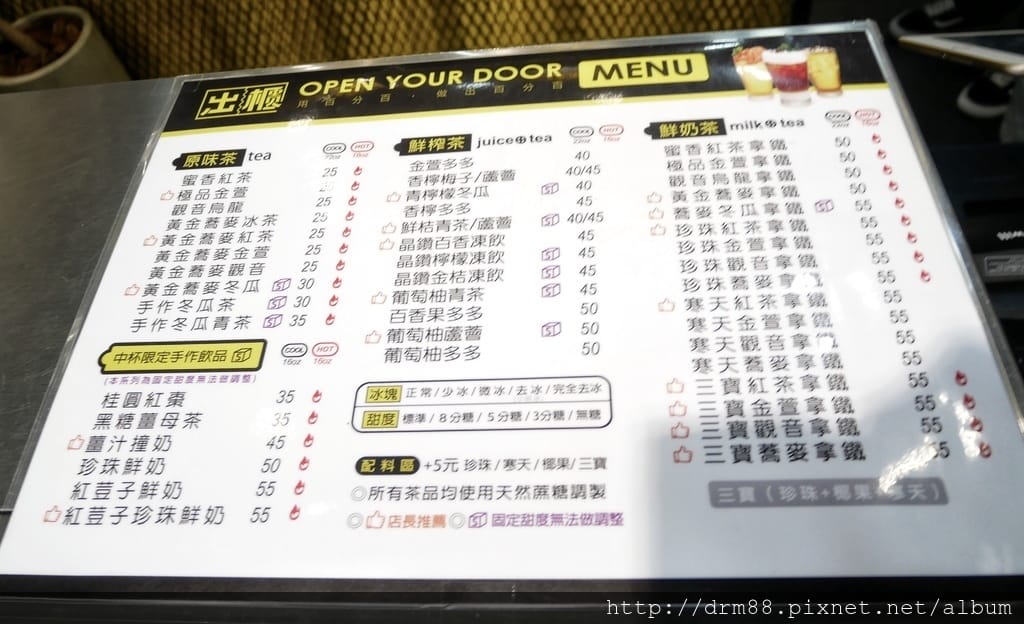 出櫃 OPEN YOUR DOOR MENU
用百分百．做出百分百
原味茶 tea COOL 22oz HOT 16oz
蜜香紅茶 25
極品金萱 25
觀音烏龍 25
黃金蕎麥冰茶 25
黃金蕎麥紅茶 25
黃金蕎麥金萱 25
黃金蕎麥觀音 25
黃金蕎麥冬瓜 30
手作冬瓜茶 30
手作冬瓜青茶 35
中杯限定手作飲品 COOL 16oz HOT 16oz
(本系列為固定甜度無法做調整)
桂圓紅棗 35
黑糖薑母茶 35
薑汁撞奶 45
珍珠鮮奶 50
紅荳子鮮奶 55
紅荳子珍珠鮮奶 55
鮮榨茶 juice⊕tea COOL 22oz HOT 16oz
金萱多多 40
香檸梅子/蘆薈 40/45
青檸檬冬瓜 40
香檸多多 45
鮮桔青茶/蘆薈 40/45
晶鑽百香凍飲 45
晶鑽檸檬凍飲 45
晶鑽金桔凍飲 45
葡萄柚青茶 45
百香果多多 50
葡萄柚蘆薈 50
葡萄柚多多 50
冰塊 正常/少冰/微冰/去冰/完全去冰
甜度 標準/8分糖/5分糖/3分糖/無糖
配料區 +5元 珍珠/寒天/椰果/三寶
◎所有茶品均使用天然蔗糖調製
◎店長推薦◎固定甜度無法做調整
鮮奶茶 milk⊕tea COOL 22oz HOT 16oz
蜜香紅茶拿鐵 50
極品金萱拿鐵 50
觀音烏龍拿鐵 50
黃金蕎麥拿鐵 50
蕎麥冬瓜拿鐵 55
珍珠紅茶拿鐵 55
珍珠金萱拿鐵 55
珍珠觀音拿鐵 55
珍珠蕎麥拿鐵 55
寒天紅茶拿鐵 55
寒天金萱拿鐵 55
寒天觀音拿鐵 55
寒天蕎麥拿鐵 55
三寶紅茶拿鐵 55
三寶金萱拿鐵 55
三寶觀音拿鐵 55
三寶蕎麥拿鐵 55
三寶（珍珠+椰果+寒天）
http://drm88.pixnet.net/album